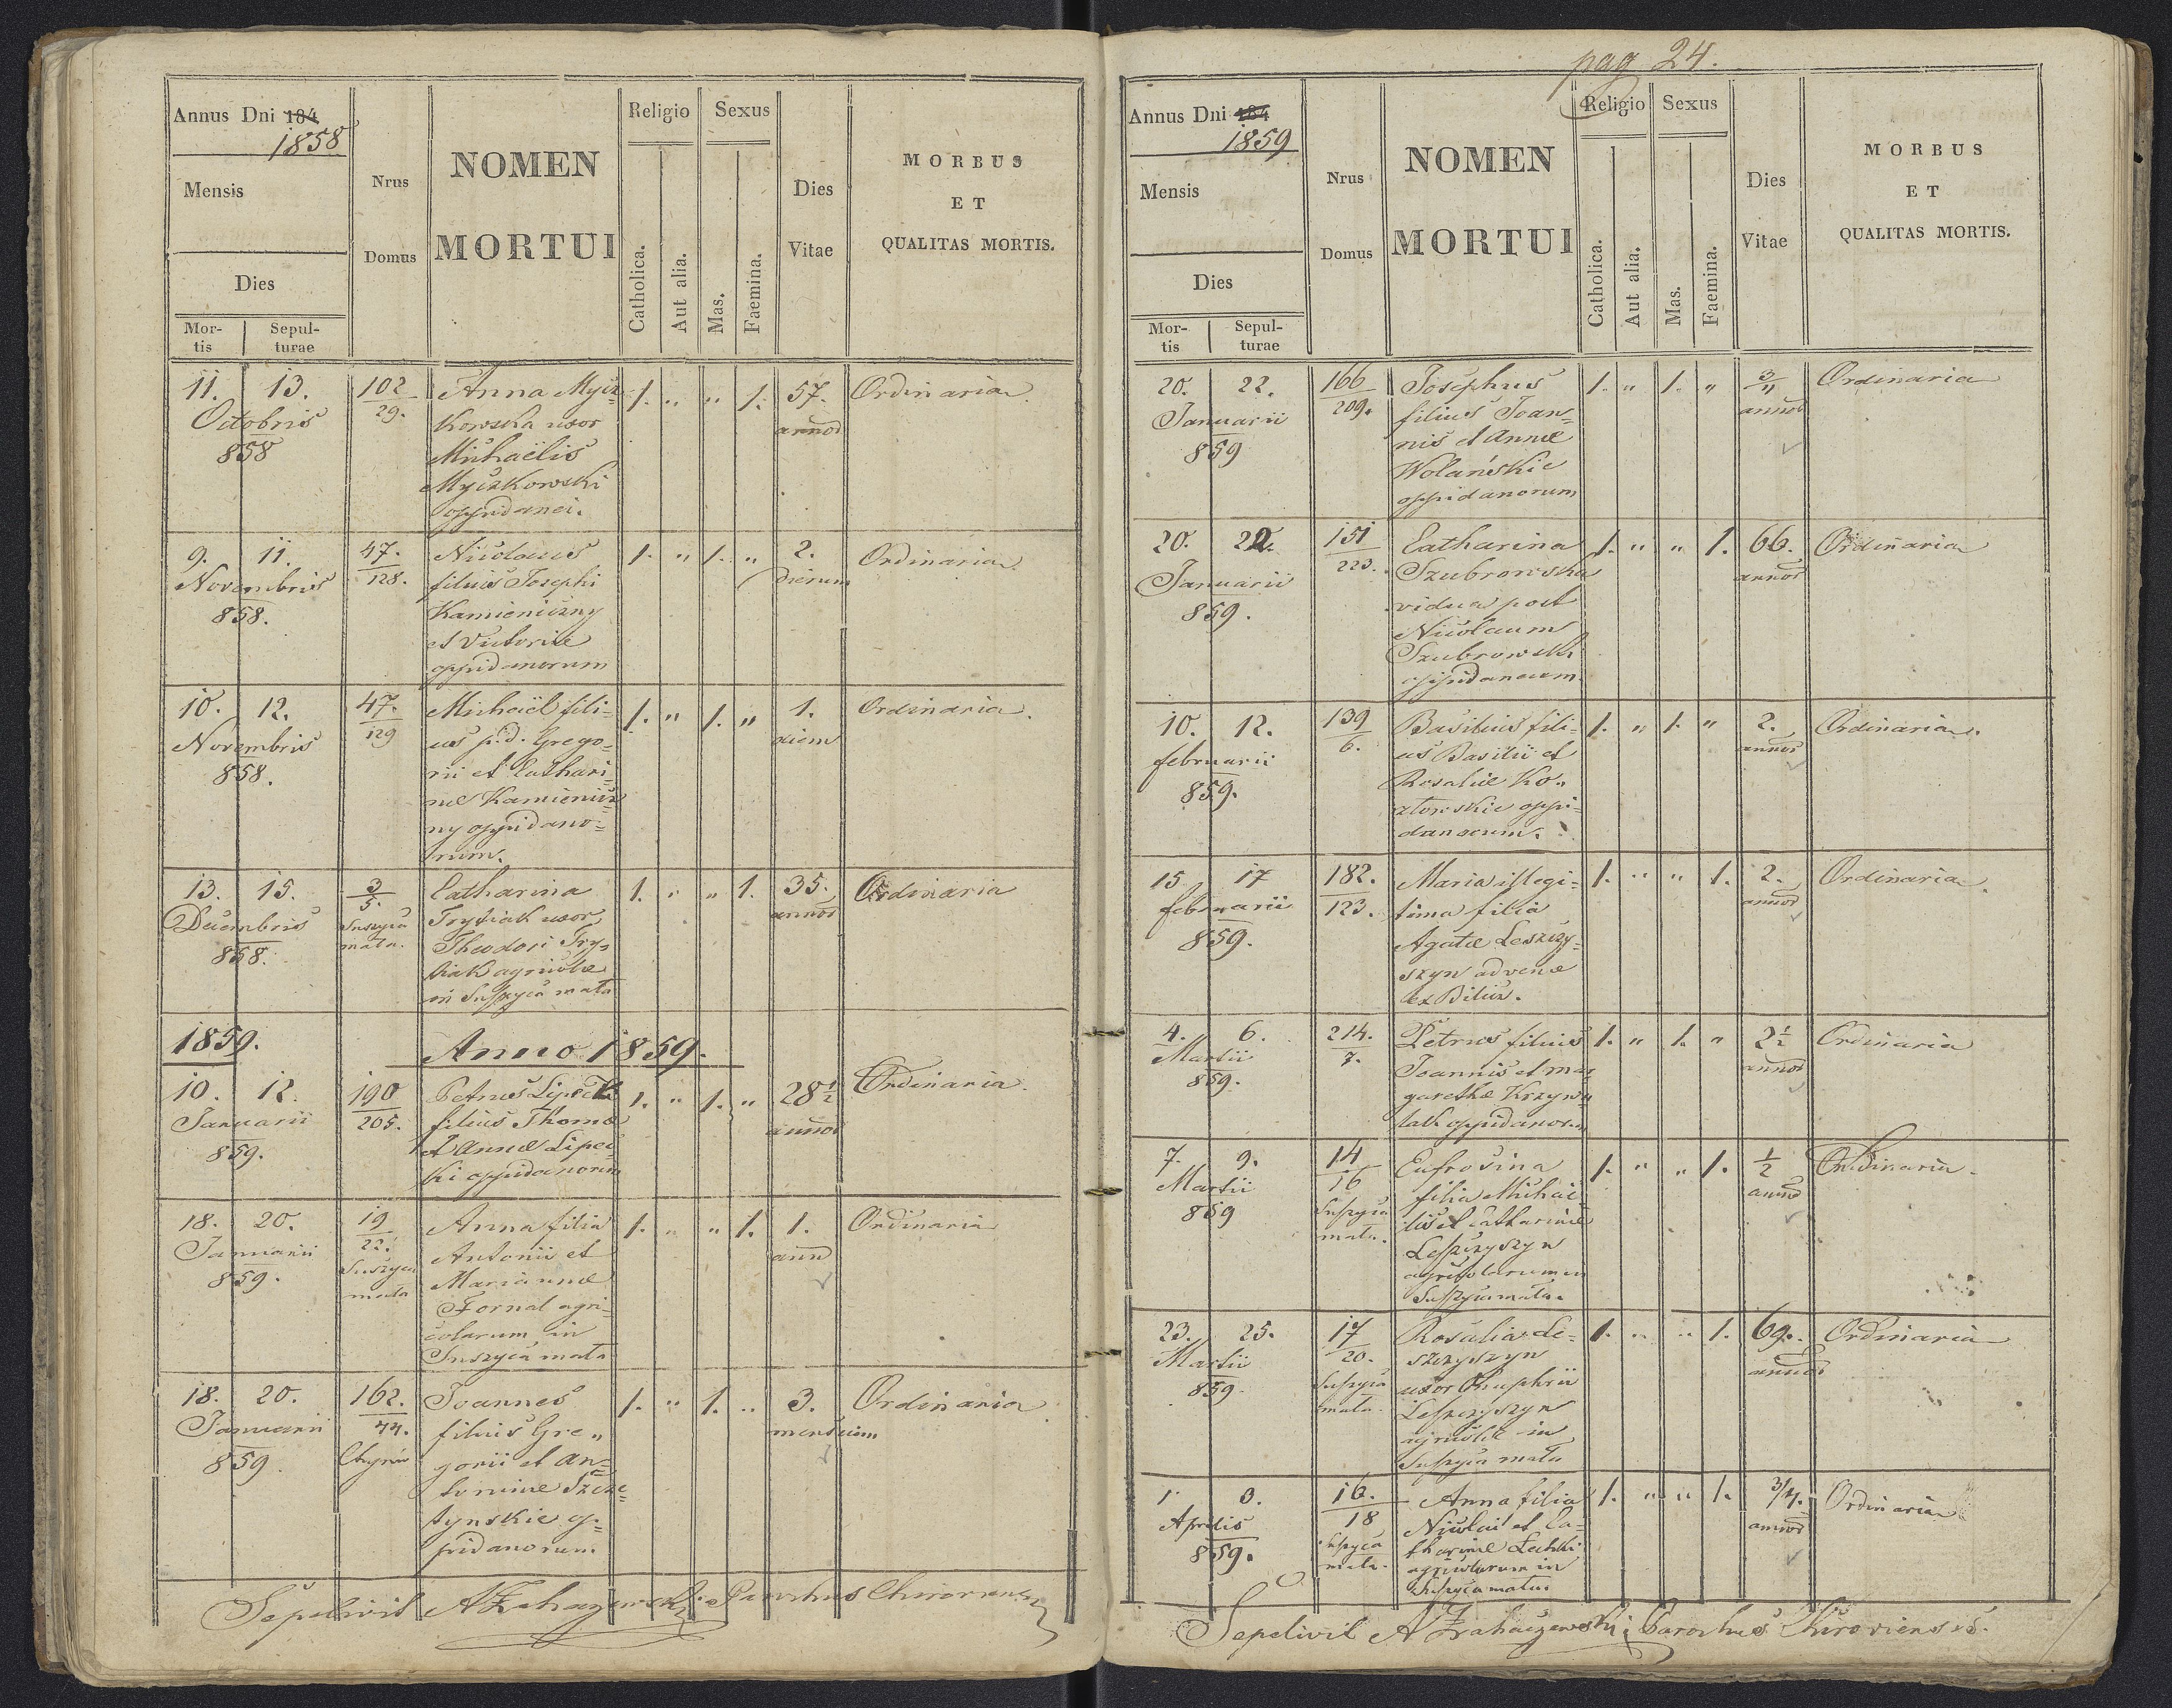 Annus Dni 184
1858
Mensis
Dies
Mor-
tis
Sepul-
turae
Nrus
Domus
NOMEN
MORTUI
Religio
Catholica.
Aut alia.
Sexus
Mas.
Faemina.
Dies
Vitae
MORBUS
ET
QUALITAS MORTIS.
11. 13. 102 Anna Mycz- 1. " " 1. 57. Ordinaria.
Octobris 29. kowska uxor annor
858 Michaëlis
Myczkowski
oppidanei.
9. 11. 47. Nicolaus 1. " 1. " 2. Ordinaria.
Novembris 128. filius Josephi dierum
858. Kamieniczny
et Victoriæ
oppidanorum
10. 12. 47. Michaël fili- 1. " 1. " 1. Ordinaria.
Novembris 129 us p.d. Grego- diem
858. rii et Cathari-
næ Kamienicz
ny oppidano=
rum.
13. 15. 3 Catharina 1. " " 1. 35. Ordinaria
Decembris 5. uxor annor
858. Suszyca
mała. Theodori
agricolæ
in Suszyca mała
1859. Anno 1859.
10. 12. 190 Petrus Lipecki 1. " 1. " 28 1/2 Ordinaria.
Januarii 205. filius Thomæ annor
859. et Annæ Lipec
ki oppidanorum
18. 20. 19 Anna filia 1. " " 1. 1. Ordinaria
Januarii 22. Antonii et ann
859. Suszyca Mariannæ
mała Fornal agri-
colarum in
Suszyca mała
18. 20. 162. Joannes 1. " 1. " 3. Ordinaria
Januarii 44. filius Gre" mensium
859. Chyrów gorii et An=
toninæ Szcze=
tynskie op=
pidanorum.
Sepelivit Parochus Chiroviensis
pag 24.
Annus Dni 184
1859
Mensis
Dies
Mor-
tis
Sepul-
turae
Nrus
Domus
NOMEN
MORTUI
Religio
Catholica.
Aut alia.
Sexus
Mas.
Faemina.
Dies
Vitae
MORBUS
ET
QUALITAS MORTIS.
20. 22. 166 Josephus 1. " 1. " 3 Ordinaria
Januarii 209. filius Joan= annor
859 nis et Annæ
Wolańskie
oppidanorum
20. 22. 151 Catharina 1. " " 1. 66. Ordinaria
Januarii 223. Szubrowska annor
859. vidua post
Nicolaum
Szubrowski
oppidaneum
10. 12. 139 Basilius fili- 1. " 1. " 2. Ordinaria.
februarii 6. us Basilii et annor
859. Rosaliæ Ko"
złowskie oppi-
danorum.
15 17 182. Maria illegi= 1. " " 1. 2. Ordinaria.
februarii 123. tima filia annor
859. Agatæ Leszczy-
szyn advenæ
ex Bilicz.
4. 6. 214. Petrus filius 1. " 1. " 2 1/2 Ordinaria
Martii 7. Joannis et Mar annor
859. garethæ Krzyw
oppidanor.
7. 9. 14 Eufrosina 1. " " 1. 1/2 Ordinaria.
Martii 16 filia Michaë annor
859 Suszyca lis et Catharinæ
mała. Leszczyszyn
agricolarum in
Suszyca mała.
23. 25. 17 Rosalia Le- 1. " " 1. 69. Ordinaria
Martii 20. szczyszyn annor
859. Suszyca uxor Onuphrii
mała. Leszczyszyn
agricolæ in
Suszyca mała
1. 3. 16. Anna filia 1. " " 1. 3/4. Ordinaria
Aprilis 18 Nicolai et Ca- annor
859. Suszyca tharinæ
mała. agricolarum in
Suszyca mała.
Sepelivit Parochus Chiroviensis.